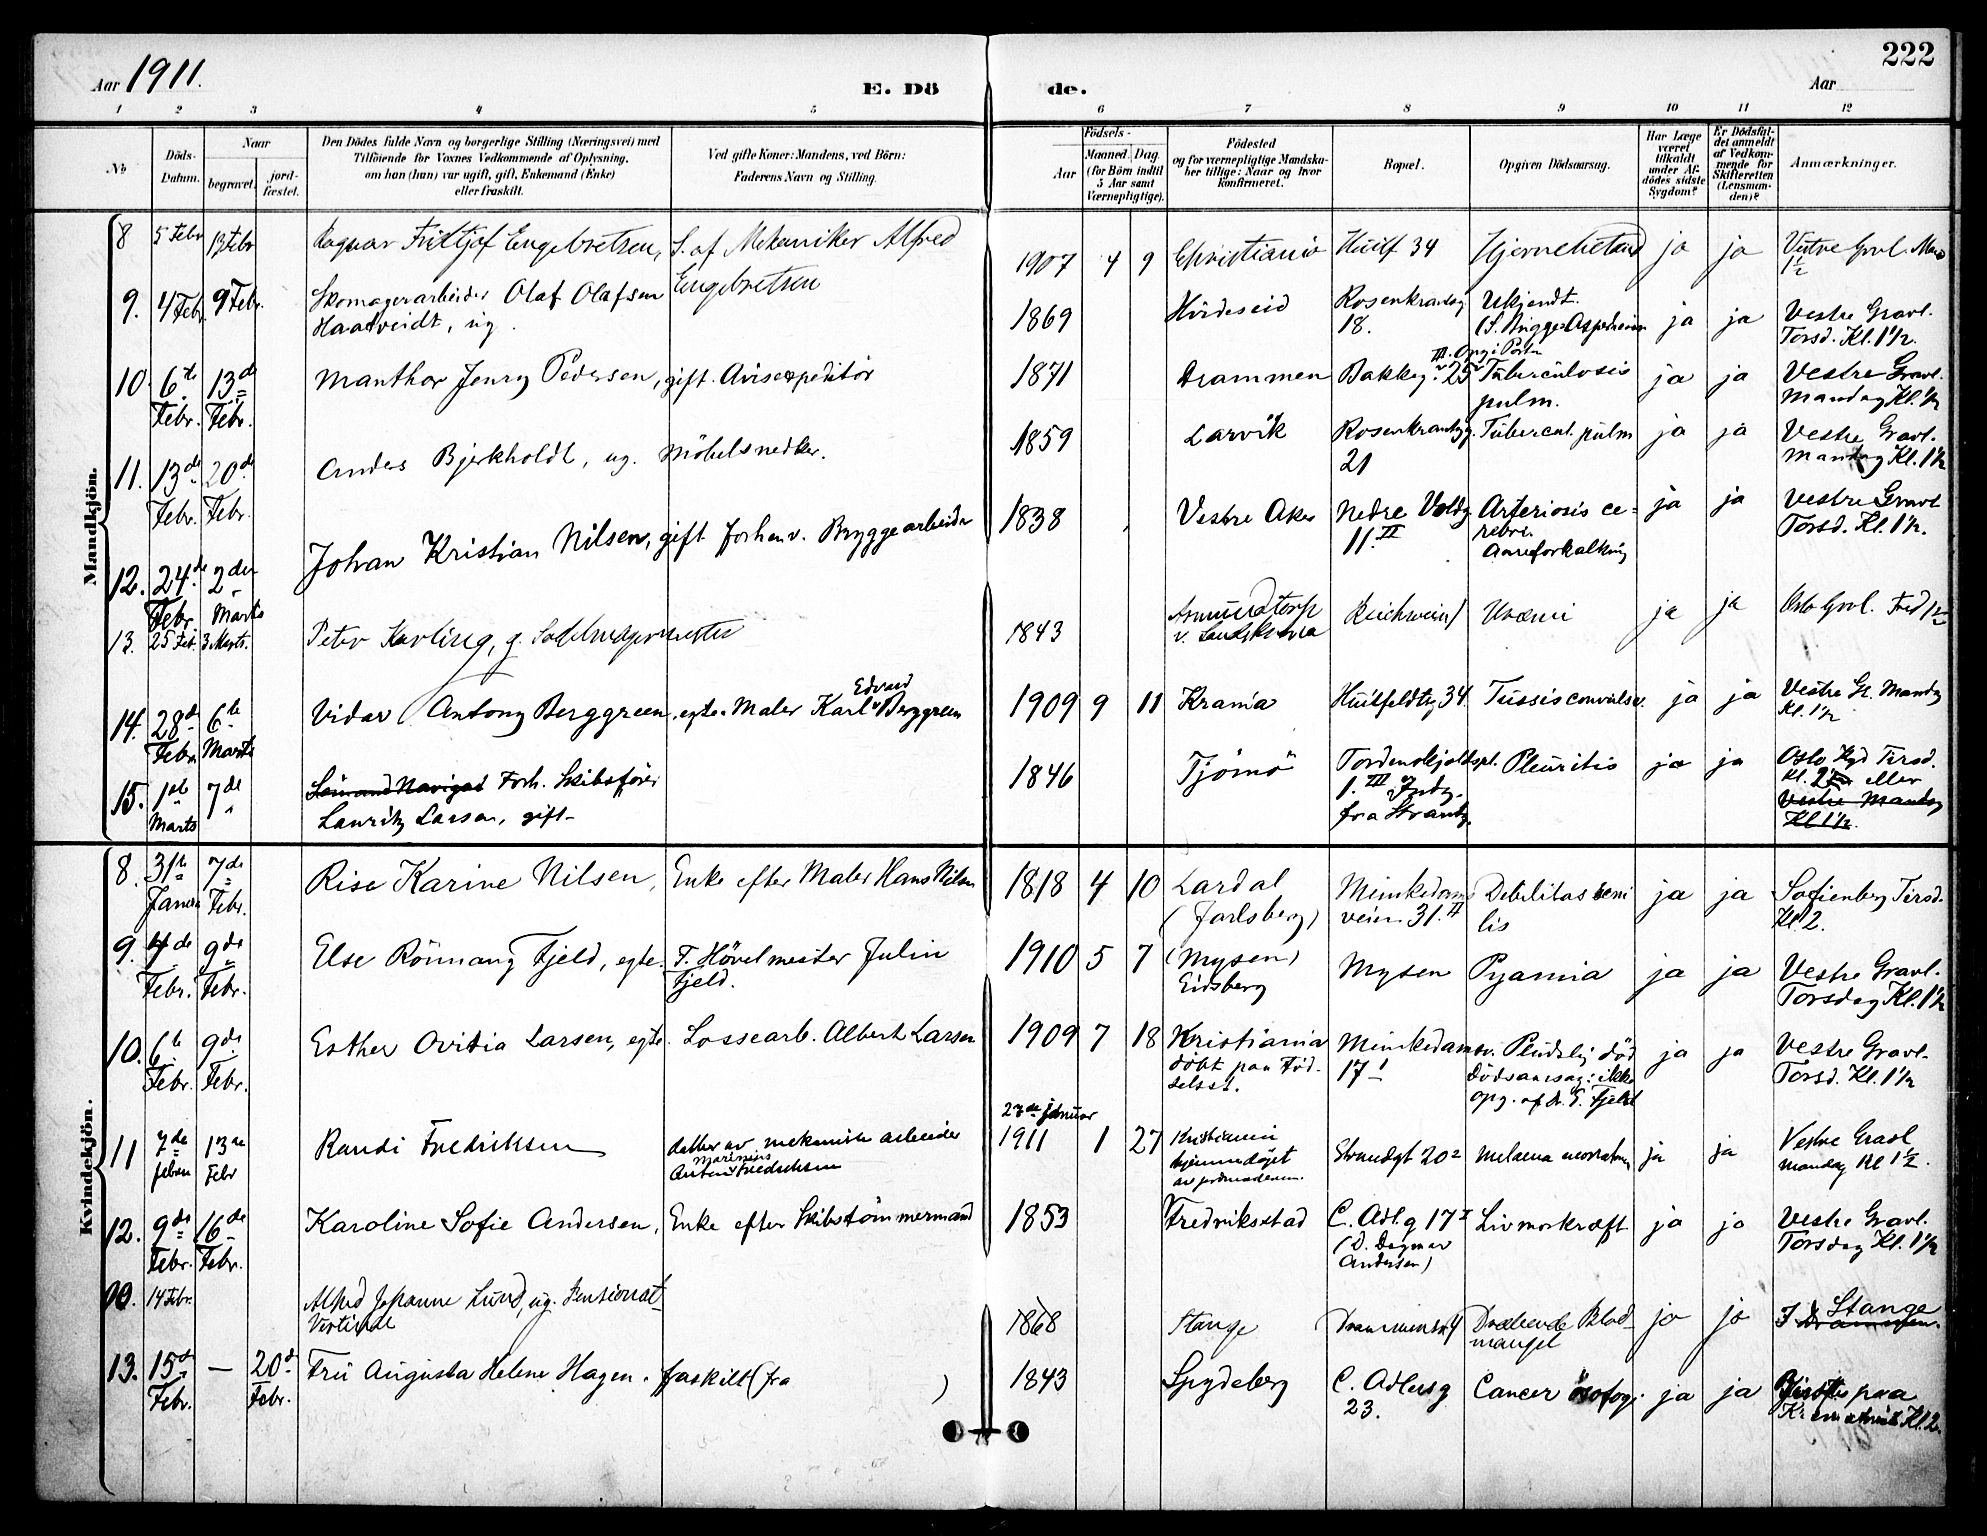 222
Aar 1911.
E. Dö
de.
Aar
1 2 3 4 5 6 7 8 9 10 11 12
No
Döds-
Datum.
Naar
begravet.
jord-
fæstet.
Den Dödes fulde Navn og borgerlige Stilling (Næringsvei) med
Tilföiende for Voxnes Vedkommende af Oplysning,
om han (hun) var ugift, gift, Enkemand (Enke)
eller fraskilt.
Ved gifte Koner: Mandens, ved Börn:
Faderens Navn og Stilling.
Födsels-
Aar
Maaned. Dag
(for Börn indtil
5 Aar samt
Værnepligtige).
Födested
og for værnepligtige Mandska-
ber tillige: Naar og hvor
konfirmeret.
Bopæl.
Opgiven Dödsaarsag.
Har Læge
været
tilkaldt
under Af-
dödes sidste
Sygdom?
Er Dödsfal-
det anmeldt
af Vedkom-
mende for
Skifteretten
(Lensman-
den)?
Anmærkninger.
Mandkjön.
8 5 Febr 13 Febr Ragnar Fritjof Engebretsen, S. af Mekaniker Alfred
Engebretsen
1907 4 9 Christiania Huitf 34 ja ja Vestre Gravl.
1½
9. 4 Febr. 9 Febr. Skomagerarbeider Olaf Olafsen
Haatveidt, ug.
1869 Hvideseid Rosenkrantzg
18.
Ukjendt.
ja ja Vestre Gravl.
Torsd. Kl. 1½.
10. 6te Febr. 13de Febr. Manthor Jenry Pedersen, gift. Avisexpeditör
1871 Drammen Bakkeg. 25 Tuberculosis
pulm.
ja ja Vestre Gravl.
Mandag Kl. 1½
11. 13de Febr. 20de Febr. Andes Bjerkholdt, ug. Möbelsnedker.
1859 Larvik Rosenkrantzg.
21
Tubercul. pulm ja ja Vestre Gravl.
Mandag Kl. 1½
12. 24de Febr. 2den Marts Johan Kristian Nilsen, gift forhenv. Bryggearbeider
1838 Vestre Aker Nedre Voldg
11. II
Arteriosis ce-
rebri.
Aareforkalkning
ja ja Vestre Gravl
Torsd. Kl. 1½.
13. 25 Feb. 3 Marts. Peter Karling, g.
1843 Asmundtorp
v. Landskrona
Uræmi ja ja Oslo Gravl. Fred 1½
14. 28de Febr. 6te Marts Vidar Antony Berggreen, egte. Maler Karl Edvard Berggreen
1909 9 11 Krania Huitfeldtsg 34. Tussis convulsiv. ja ja Vestre Gr. Mandag
Kl. 1½
15. 1ste Marts 7de " Forh. Skibsförer
Lauritz Larsen, gift-
1846 Tjömö Tordenskjoldspl.
1. III
fra Strandg.
Pleuritis ja ja Oslo Kgd Tirsd.
Kl. 2 eller
Vestre Mandag
Kl 1½.
Kvindekjön.
8. 31te Januar 7de Febr. Rise Karine Nilsen, Enke efter Maler Hans Nilsen
1818 4 10 Lardal
(Jarlsberg)
Munkedams
veien 31. II
Debilitas seni
lis
ja ja Sofienberg Tirsd.
Kl 2.
9. 4de Febr. 9de Febr. Else Rönnaug Fjeld, egte. F. Hövelmester Julin
Fjeld.
1910 5 7 (Mysen)
Eidsberg
Mysen Pyæmia ja ja Vestre Gravl.
Torsdag Kl. 1½
10. 6te Febr. 9de Febr. Esther Ovidia Larsen, egte. Lossearb. Albert Larsen
1909 7 18 Kristiania
döbt paa Föd-
selsst.
Munkedamsv.
17 I
Pludselig död
Dödsaarsag: ikke
opg. af Dr. E. Fjeld
ja ja Vestre Gravl.
Torsd. Kl. 1½
11 7de febru 13de Febr Randi Fredriksen datter av mekanisk arbeider
Anton Marinius Fredriksen
23de januar
1911 1 27 Kristiania
hjemmedöpt
av jordmoderen.
Strandgt 20 melaena neonatorum ja ja Vestre Gravl
mandag Kl 1½.
12. 9de Febr. 16de Febr. Karoline Sofie Andersen, Enke efter Skibstömmermand
1853 Fredriksstad C. Adl. g 17 I
(D. Dagmar
Andersen)
Livmorkræft ja ja Vestre Gravl.
Torsdag Kl. 1½
14 Febr. Johanne Lund, ug. Pensionat-
Vertinde
1868 Stange Drammensv 4 Dræbende Blod-
mangel
ja ja I Drammen. Stange
13. 15de Febr. — 20de Febr. Fru Augusta Helene Hagen. fraskilt (fra )
1843 Spydeberg C. Adlersg
23.
Cancer ösofagi. ja ja paa
Krematoriet Kl. 2.